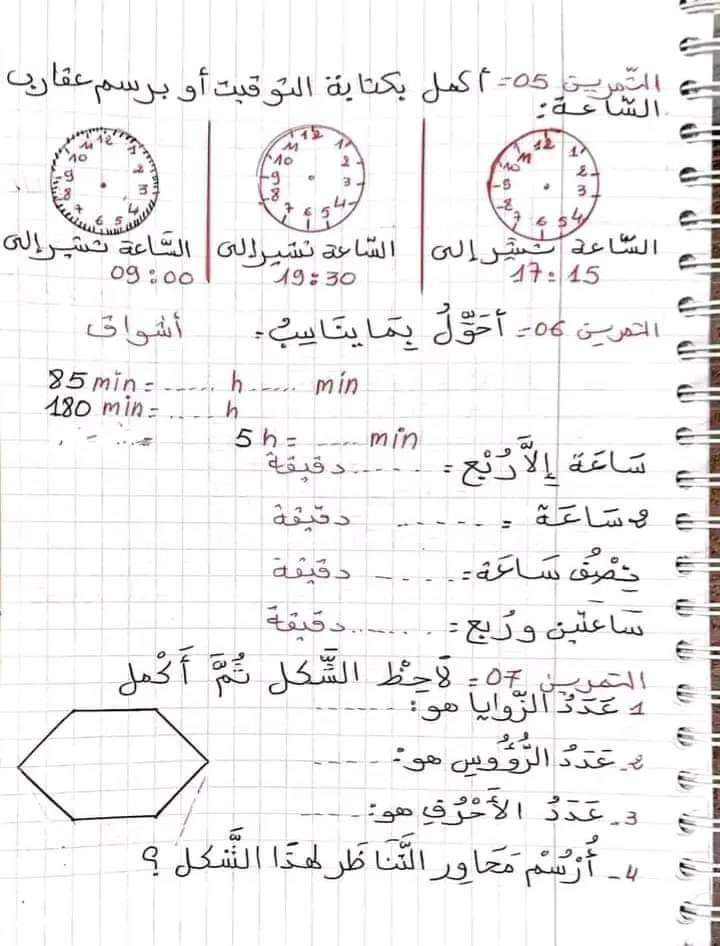 التّمرين 05= أكمل بكتابة التوقيت أو برسم عقارب
السّاعة:
12 1 2 3 4 5 6 7 8 9 10 11
12 1 2 3 4 5 6 7 8 9 10 11
12 1 2 3 4 5 6 7 8 9 10 11
السّاعة تشير إلى
17:15
السّاعة تشير إلى
19:30
السَّاعة تشير إلى
09:00
التمرين 06= أحَوِّلُ بِمَا يناسِبُ= أشواق
85 min = ...... h ...... min
180 min = ..... h
5 h = ..... min
سَاعَة إِلاَّ رُبْع = ........ دقيقة
2 سَاعَة = ...... دقيقة
نِصْفُ سَاعَة= ..... دقيقة
سَاعَتَين ورُبع = ........ دقيقة
التمرين 07= لاَحِظ الشَّكل ثُمَّ أَكْمل
1 عَدَدُ الزّوايا هو: ........
2- عَدَدُ الرُّؤُوسِ هو: ......
3- عَدَدُ الأَحْرُفِ هو: ......
4- أُرْسُمْ مَحَاوِر التَّنَاظَر لهذَا الشَّكل ؟